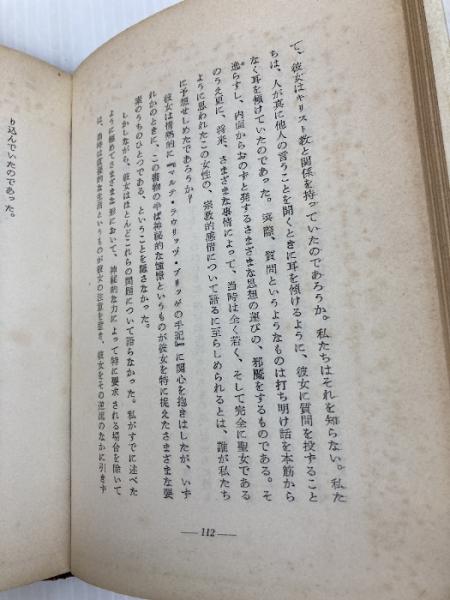 て、彼女はキリスト教と関係を持っていたのであろうか。私たちはそれを知らない。私た
ちは、人が真に他人の言うことを聞くときに耳を傾けるように、彼女に質問を投ずること
なく耳を傾けていたのであった。実際、質問というようなものは打ち明け話を本筋から
逸らすし、内面からおのずと発するさまざまな思想の運びの、邪魔をするものである。そ
のうえ更に、将来、さまざまな事情によって、当時は全く若く、そして完全に聖女である
ように思われたこの女性の、宗教的感情について語るに至らしめられるとは、誰が私たち
に予想せしめたであろうか?
彼女は情熱的に『マルテ・ラウリッツ・ブリッゲの手記』に関心を抱きはしたが、いず
れかのときに、この書物の半ば神秘的な憧憬というものが彼女を特に捉えたさまざまな要
素のうちのひとつである、ということを隠さなかった。
しかしながら、彼女はほとんどこれらの問題について語らなかった。私がすでに述べた
ように極めてさまざまな形において、神秘的な力によって特に要求される場合を除いて
は、当時は直接的な生活というものが彼女の注意を惹き、彼女をその逆流のなかに引きず
― 112 ―
り込んでいたのであった。